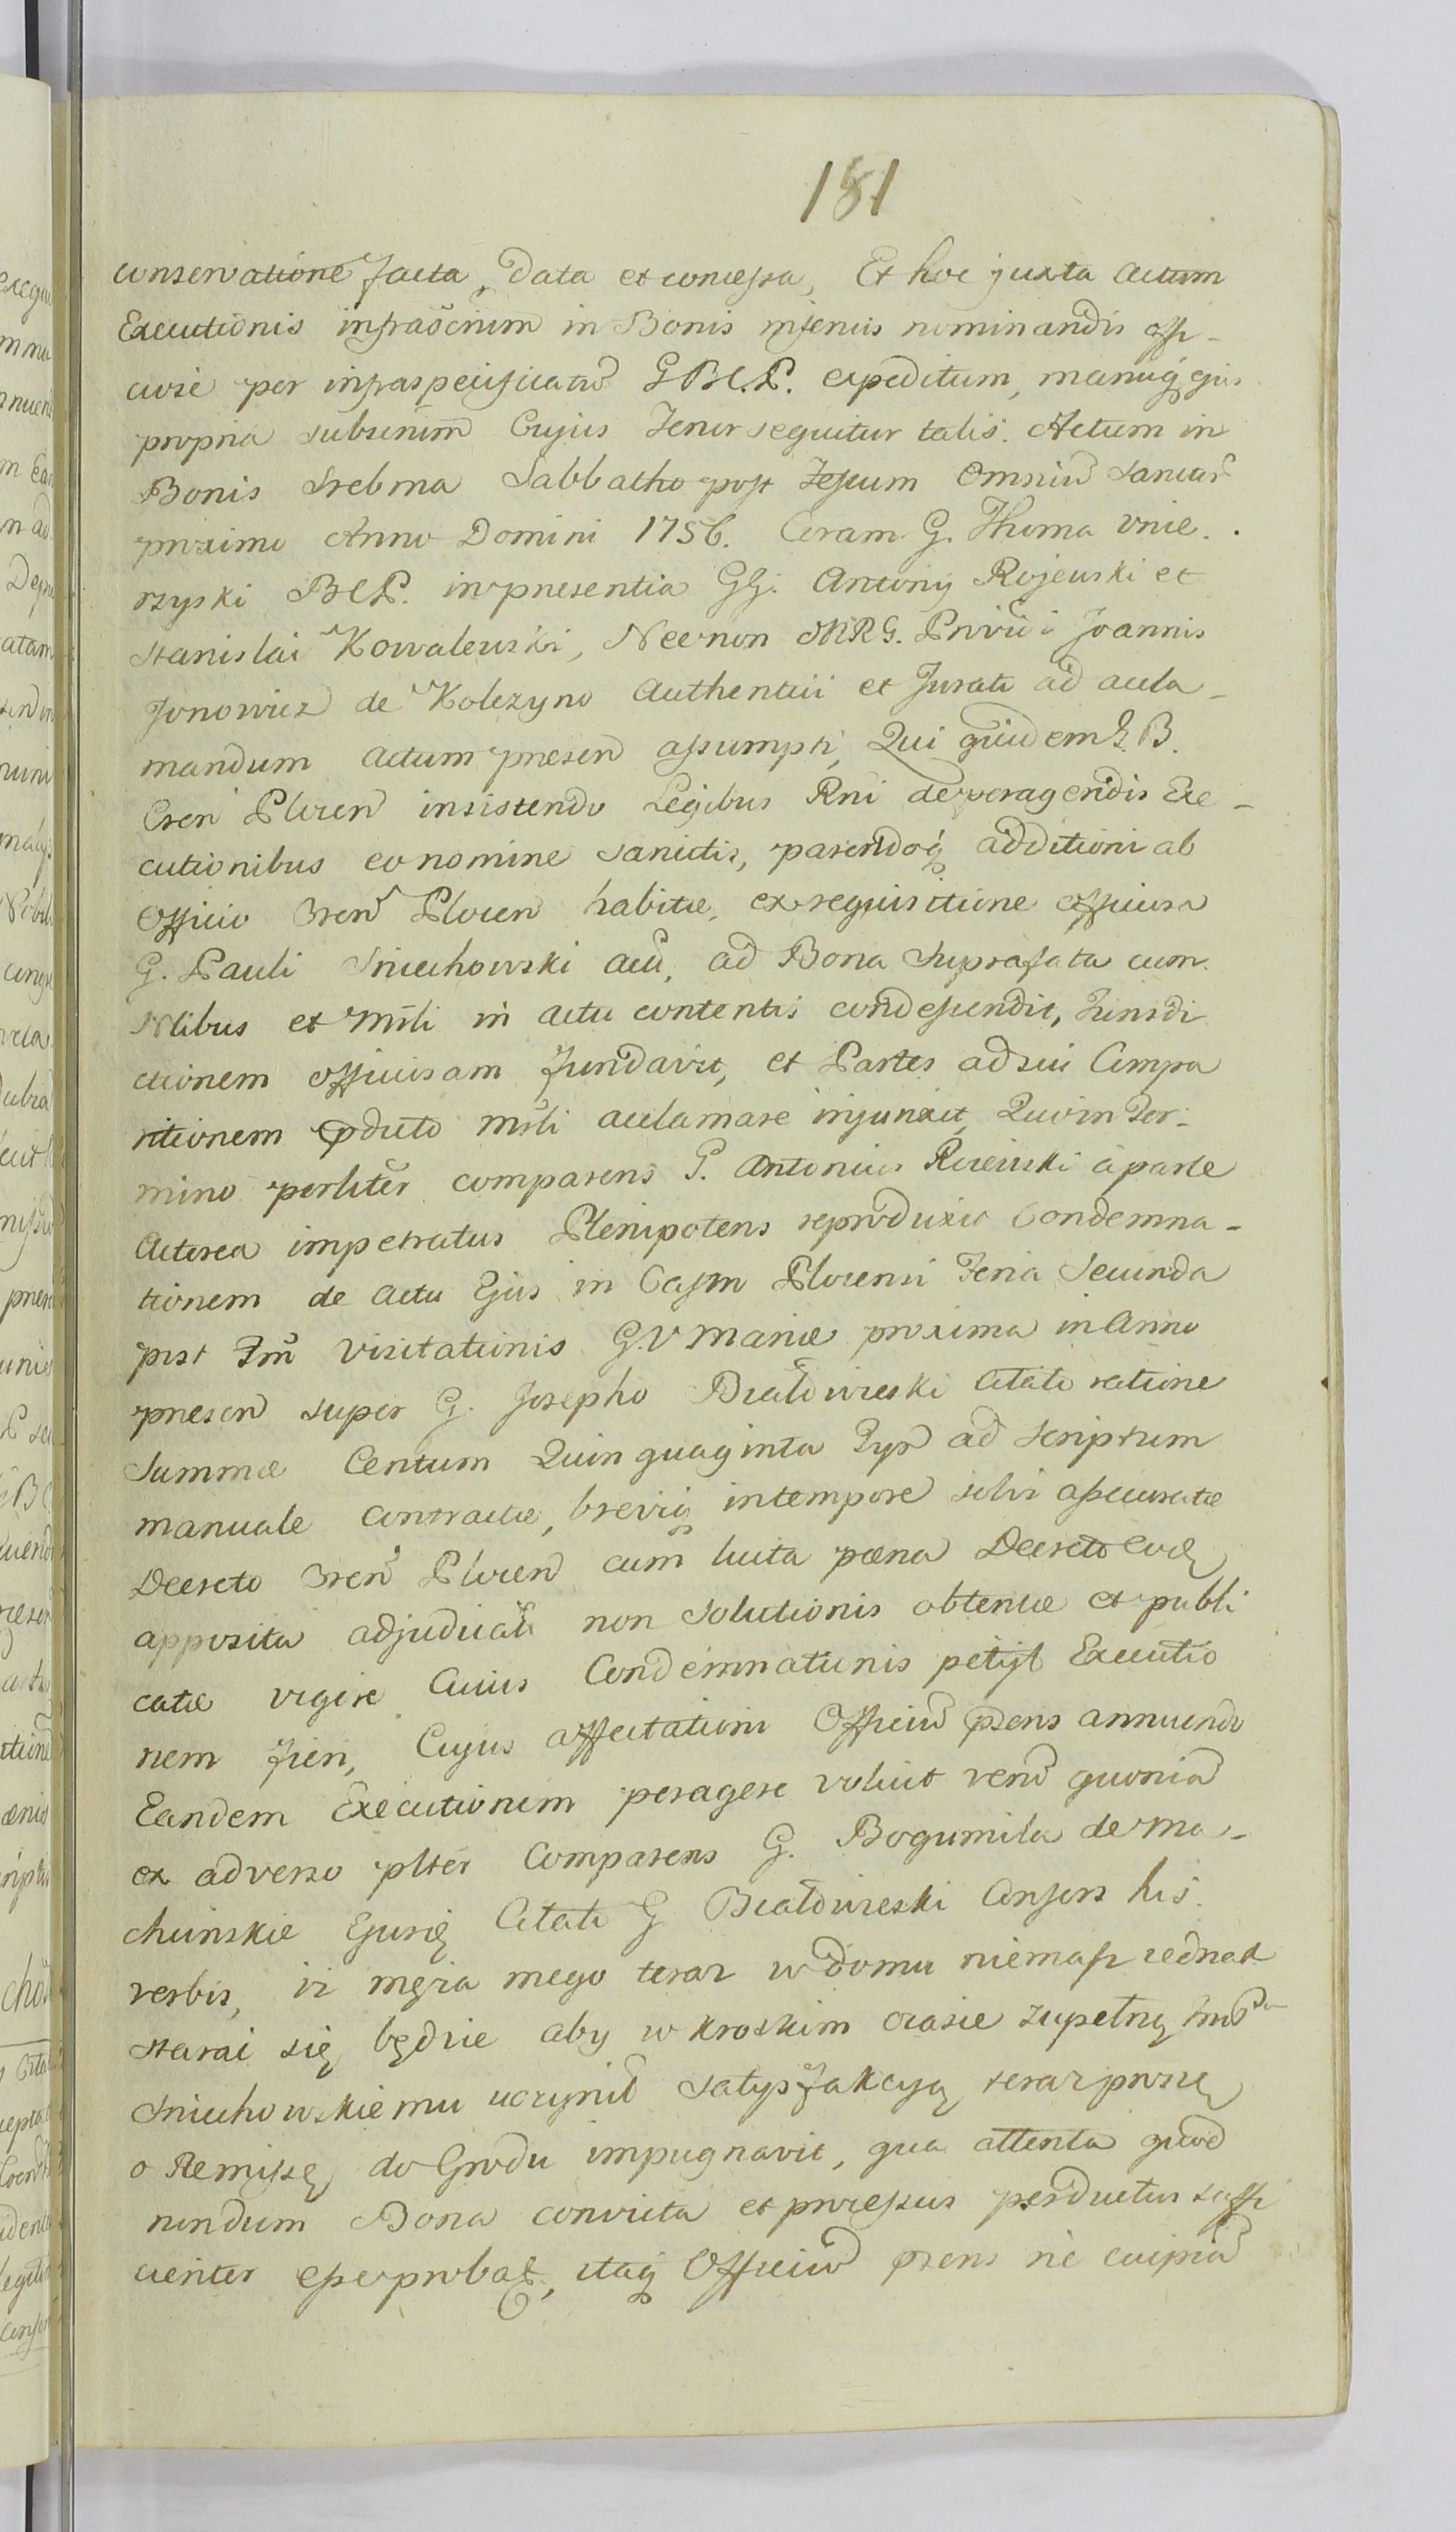 181
conservatione facta, data et concessa, Et hoc juxta actum
Executionis infrascrium in Bonis inferius nominandis offi-
ciose per infraspecificatū GBCP. expeditum, manuq̨ ejus
propria subscrium Cujus Tenor sequitur talis. Actum in
Bonis Srebrna Sabbatho post Festum Omniū Sanctar̄
proximo Anno Domini 1756. Coram G. Thoma Unie.
rzyski BCP. in presentia GG. Antonij Rojewski et
Stanislai Kowalewski, Necnon MRG. Prvidi Joannis
Jonowicz de Kolczyno Authentici et Jurati ad accla-
mandum actum presen assumpti, Qui quidem G. B.
Cren Plocen insistendo Legibus Rni de peragendis Exe-
cutionibus eo nomine sancitis, parendoq̨ additioni ab
Officio Cren Plocen habitæ, ex requisitione officiosa
G. Pauli Sniechowski acū, ad Bona suprafata cum
Nlibus et Mrli in actu contentis condescendit, Jurisdi
ctionem officiosam fundavit, et Partes ad sui Compa
ritionem pducto Mrli acclamare injunxit, Quo in Ter-
mino perliter comparens G. Antonius Roiewski à parte
Actorea impetratus Plenipotens reproduxit Condemna-
tionem de actu Ejus in Castro Plocensi Feria Secunda
post Fm̄ Visitationis G.V Mariæ proxima in Anno
presen super G. Josepho Białowieski Citato ratione
Summæ Centum Quinquaginta Tyn ad Scriptum
manuale Contractæ, breviq̨ in tempore solvi assecuratæ
Decreto Cren Plocen cum lucta pœna Decreto eod
apposita adjudicatæ non Solutionis obtentæ et publi
catæ vigore Cuius Condemnationis petijt Executio
nem fieri, Cujus affectationi Officiū pxens annuendo
Eandem Executionem peragere voluit verū quoniā
ex adverso plter Comparens G. Bogumila de Ma-
chcinskie Ejusd Citati G Białowieski Consors his
verbis, iz męza mego teraz w domu niemasz iednak
starac się będzie aby w krotkim czasie zupełną JmP
Sniechowskiemu uczynił satysfakcyą teraz proszę
o Remissę do Grodu impugnavit, qua attenta quod
nondum Bona convicta et processus perductus suffi
cienter esse probat, itaq̨ Officiū pxens ne cuipiā